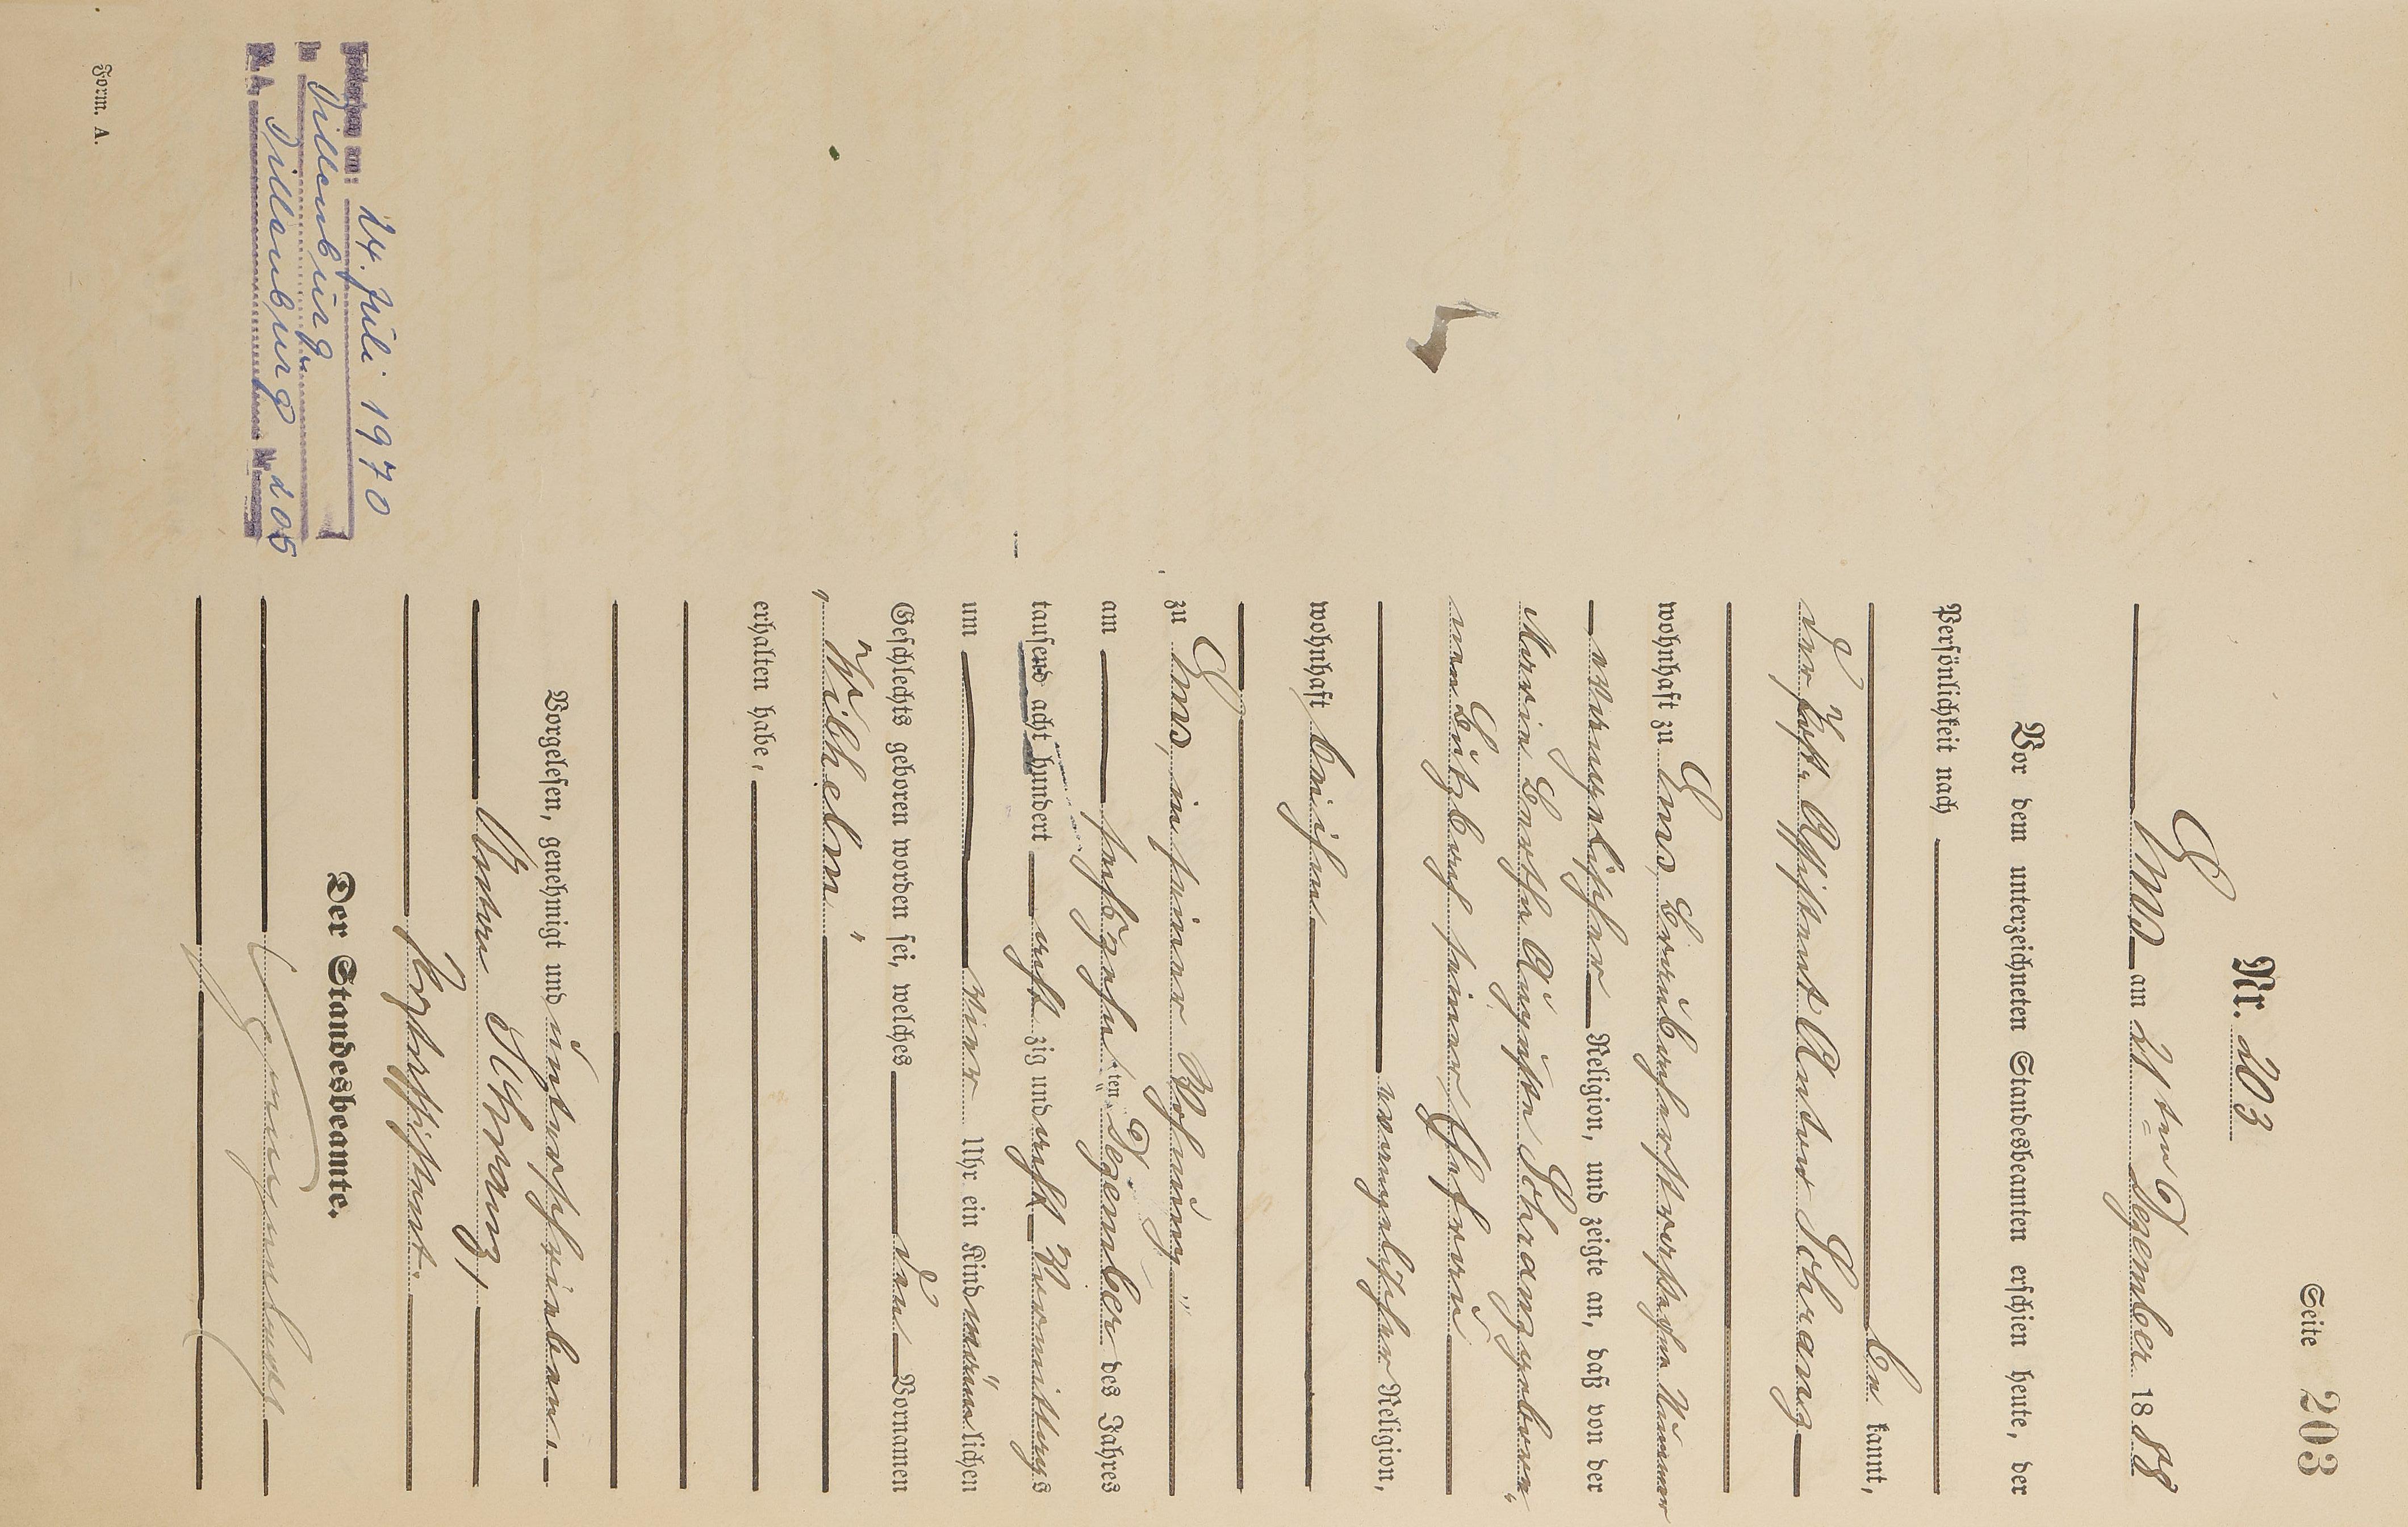 Seite 203
Nr. 203
Ems am 21ten Dezember 1888
Vor dem unterzeichneten Standesbeamten erschien heute, der
Persönlichkeit nach
be kannt,
der Post-Assistent Anton Schranz
wohnhaft zu Ems, Nummer
evangelischer Religion, und zeigte an, daß von der
Maria Bertha Auguste Schranz gebore-
nen seiner Ehefrau
evangelischer Religion,
wohnhaft bei ihm
zu Ems, in seiner Wohnung
am sechszehnten Dezember des Jahres
tausend acht hundert acht zig und acht Vormittags
um vier Uhr ein Kind männlichen
Geschlechts geboren worden sei, welches den Vornamen
„Wilhelm“
erhalten habe.
Vorgelesen, genehmigt und unterschrieben.
Anton Schranz,
Postassistent.
Der Standesbeamte.
Gestorben am: 24. Juli 1970
in Dillenburg
St.A. Dillenburg Nr. 205
Form. A.